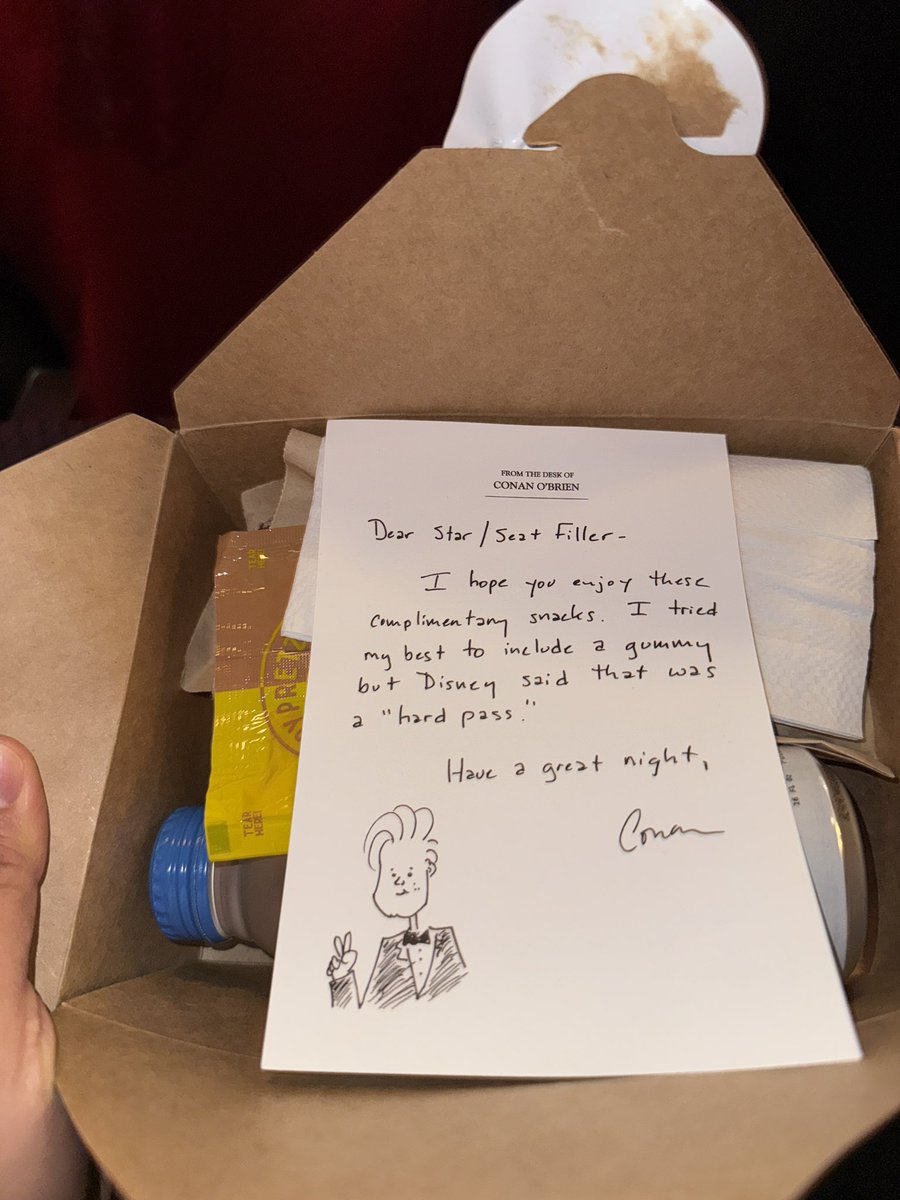 FROM THE DESK OF
CONAN O'BRIEN
Dear Star/Seat Filler-
I hope you enjoy these
complimentary snacks. I tried
my best to include a gummy
but Disney said that was
a "hard pass."
Have a great night,
Conan
TEAR
HERE!